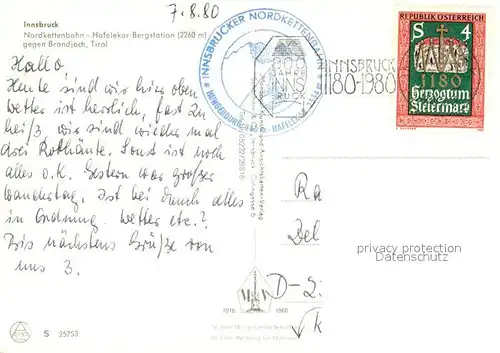 Innsbruck
Nordkettenbahn - Hafelekar-Bergstation (2260 m)
gegen Brandjoch, Tirol
7.8.80
INNSBRUCKER NORDKETTENBAHN
800
JAHRE
INNS
INNSBRUCK
1180-1980
REPUBLIK ÖSTERREICH
S 4
1180
Herzogtum
Steiermark
Hallo
Heute sind wir hier oben
Wetter ist herrlich, fast zu
heiß, wir sind wieder mal
drei Rothäute. Sonst ist noch
alles o.k. Gestern war großer
Wandertag. Ist bei Euch alles
in Ordnung. Wetter etc.?
Bis nächstens Grüße von
uns 3.
Ra
Del
D-2
privacy protection
Datenschutz
1918 1968
S 25753